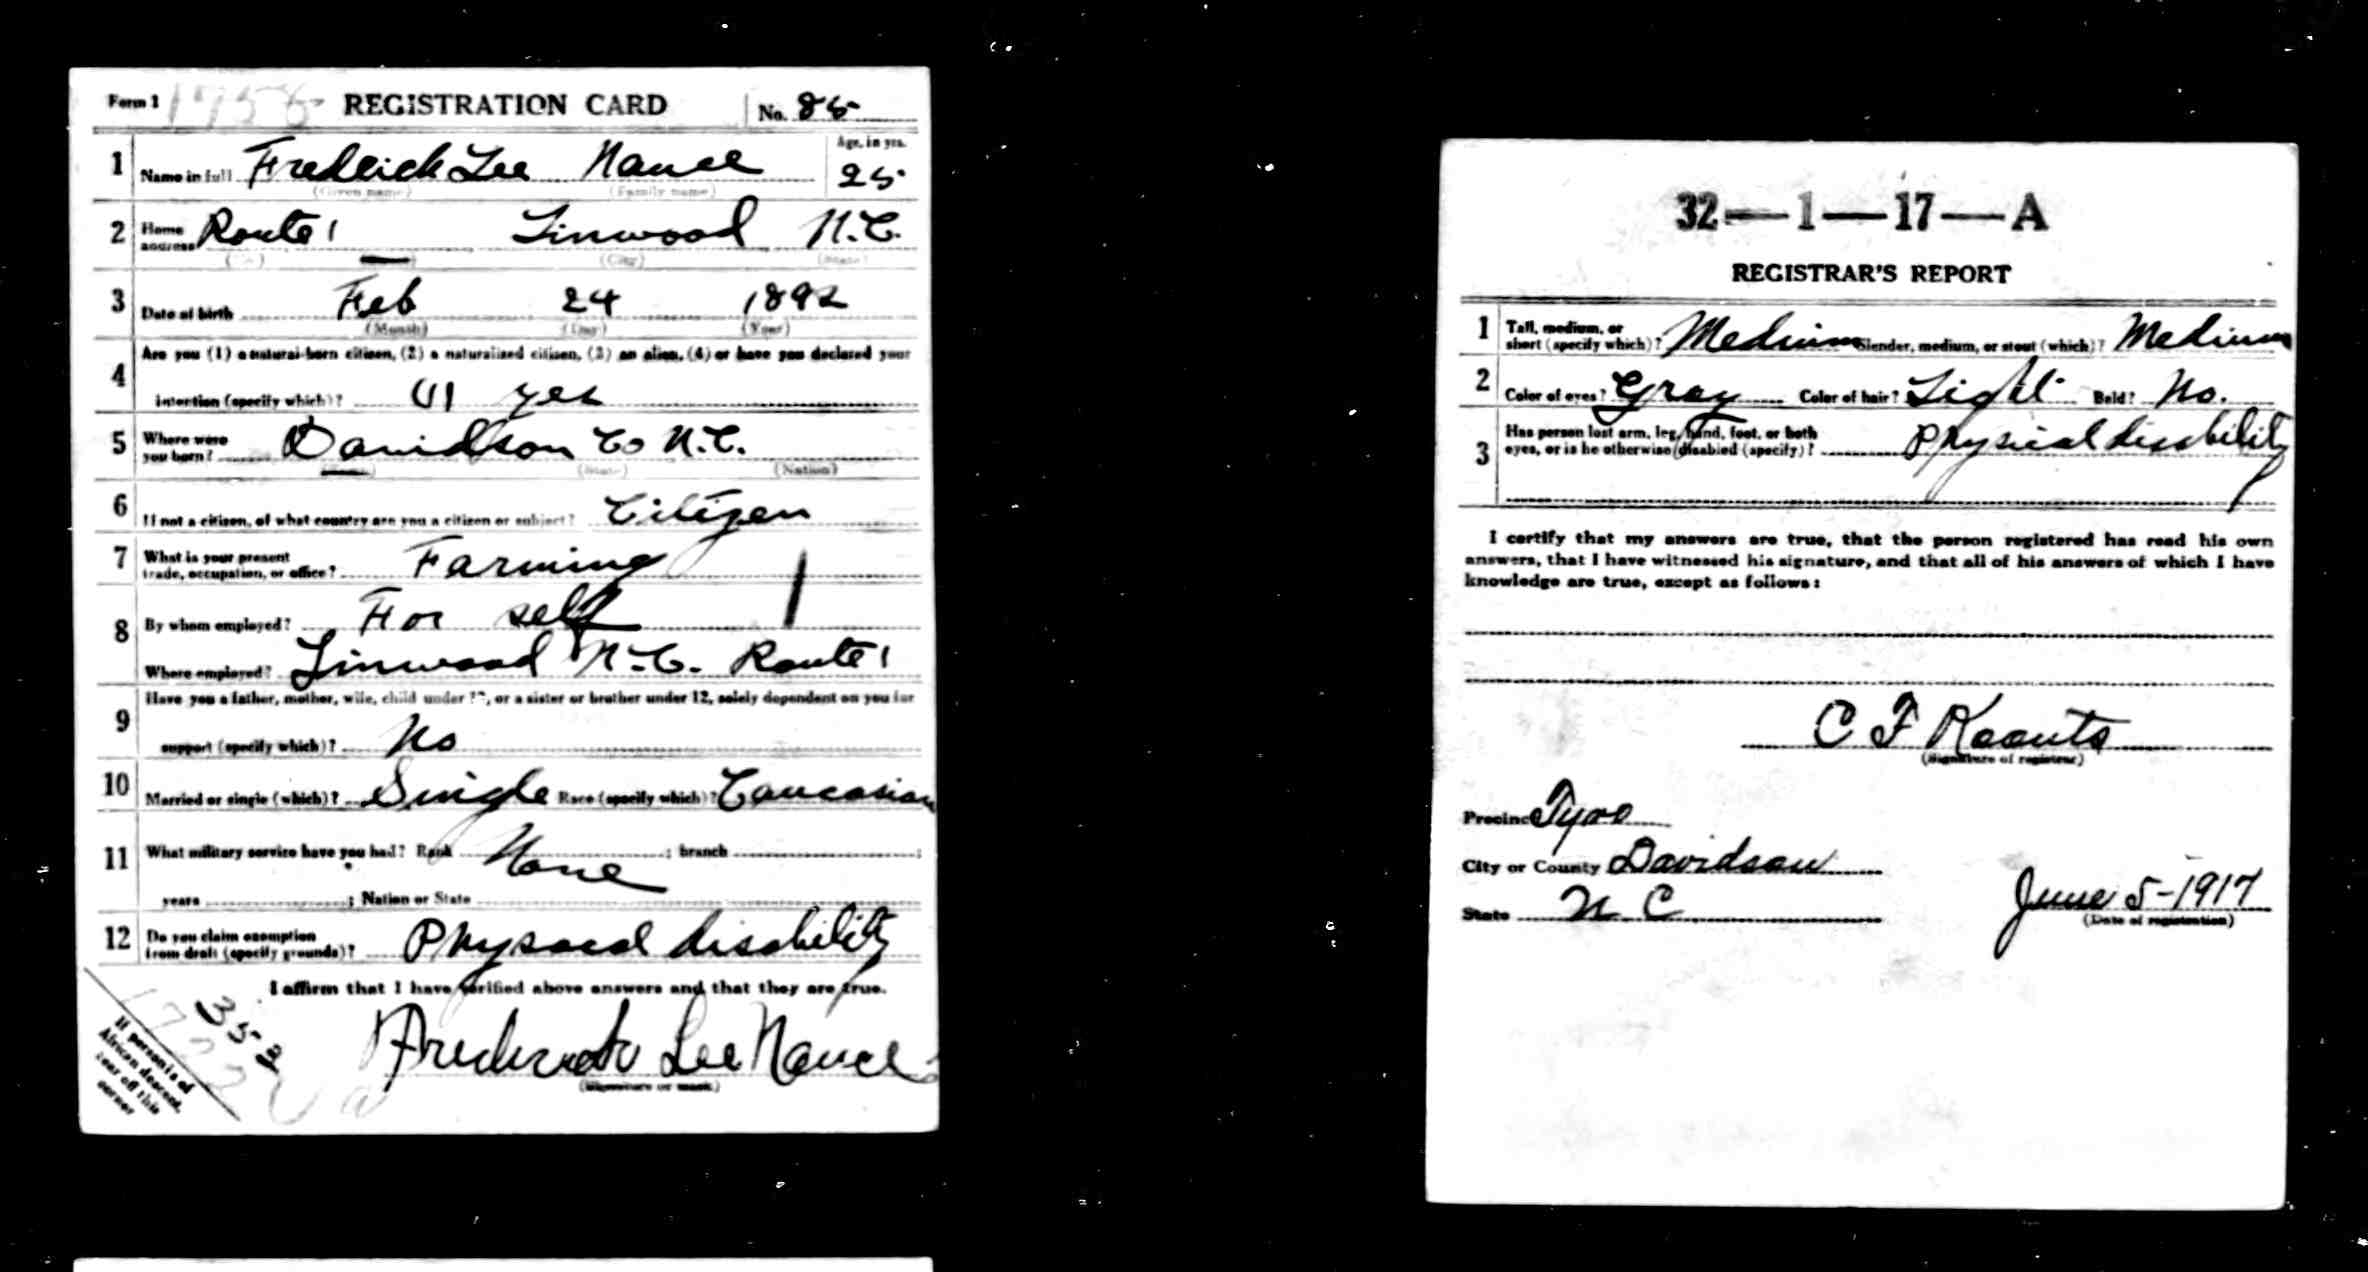 Form 1 1756 REGISTRATION CARD No. 85
1 Name in full Fredrick Lee Nance Age, in yrs. 25
(Given name) (Family name)
2 Home address Route 1 Linwood N.C.
(City) (State)
3 Date of birth Feb 24 1892
(Month) (Day) (Year)
4 Are you (1) a natural-born citizen, (2) a naturalized citizen, (3) an alien, (4) or have you declared your
intention (specify which)? (1) yes
5 Where were you born? Davidson Co N.C.
(State) (Nation)
6 If not a citizen, of what country are you a citizen or subject? Citizen
7 What is your present trade, occupation, or office? Farming
8 By whom employed? For self
Where employed? Linwood N.C. Route 1
9 Have you a father, mother, wife, child under 12, or a sister or brother under 12, solely dependent on you for
support (specify which)? No
10 Married or single (which)? Single Race (specify which)? Caucasian
11 What military service have you had? Rank None ; branch ;
years ; Nation or State
12 Do you claim exemption from draft (specify grounds)? Physical disability
I affirm that I have verified above answers and that they are true.
Frederick Lee Nance
(Signature or mark)
353
If person is of
African descent,
tear off this
corner
32—1—17—A
REGISTRAR'S REPORT
1 Tall, medium, or short (specify which)? Medium Slender, medium, or stout (which)? Medium
2 Color of eyes? Gray Color of hair? Light Bald? No.
3 Has person lost arm, leg, hand, foot, or both
eyes, or is he otherwise disabled (specify)? Physical disability
I certify that my answers are true, that the person registered has read his own
answers, that I have witnessed his signature, and that all of his answers of which I have
knowledge are true, except as follows:
C F Koonts
(Signature of registrar)
Precinct Tyro
City or County Davidson
State N C June 5-1917
(Date of registration)